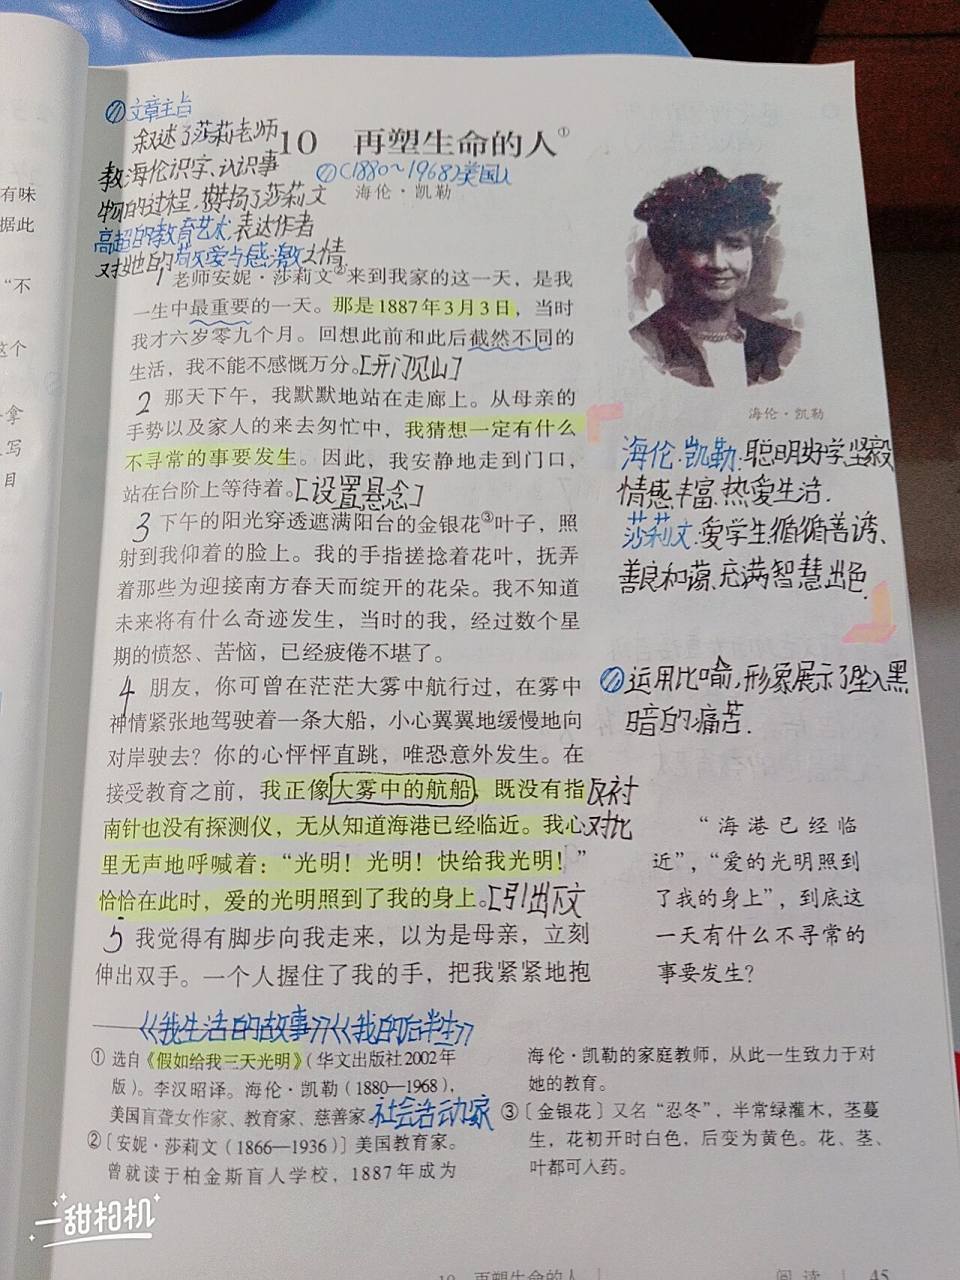 有味
据此
“不
这个
拿
写
目
文章主旨
叙述了莎莉老师
教海伦识字、认识事
物的过程,赞扬了莎莉文
高超的教育艺术,表达作者
对她的敬爱与感激之情
10 再塑生命的人①
(1880~1968)美国人
海伦·凯勒
1 老师安妮·莎莉文②来到我家的这一天，是我
一生中最重要的一天。那是1887年3月3日，当时
我才六岁零九个月。回想此前和此后截然不同的
生活，我不能不感慨万分。[开门见山]
2 那天下午，我默默地站在走廊上。从母亲的
手势以及家人的来去匆忙中，我猜想一定有什么
不寻常的事要发生。因此，我安静地走到门口，
站在台阶上等待着。[设置悬念]
3 下午的阳光穿透遮满阳台的金银花③叶子，照
射到我仰着的脸上。我的手指搓捻着花叶，抚弄
着那些为迎接南方春天而绽开的花朵。我不知道
未来将有什么奇迹发生，当时的我，经过数个星
期的愤怒、苦恼，已经疲倦不堪了。
4 朋友，你可曾在茫茫大雾中航行过，在雾中
神情紧张地驾驶着一条大船，小心翼翼地缓慢地向
对岸驶去？你的心怦怦直跳，唯恐意外发生。在
接受教育之前，我正像大雾中的航船，既没有指
南针也没有探测仪，无从知道海港已经临近。我心
里无声地呼喊着：“光明！光明！快给我光明！”
恰恰在此时，爱的光明照到了我的身上。[引出下文
5 我觉得有脚步向我走来，以为是母亲，立刻
伸出双手。一个人握住了我的手，把我紧紧地抱
反衬
对比
海伦·凯勒
海伦·凯勒:聪明好学、坚毅
情感丰富、热爱生活.
莎莉文:爱学生、循循善诱、
善良和蔼、充满智慧出色.
运用比喻,形象展示了坠入黑
暗的痛苦.
“海港已经临
近”，“爱的光明照到
了我的身上”，到底这
一天有什么不寻常的
事要发生？
《我生活的故事》《我的后半生》
① 选自《假如给我三天光明》（华文出版社2002年
版）。李汉昭译。海伦·凯勒（1880—1968），
美国盲聋女作家、教育家、慈善家 社会活动家
②〔安妮·莎莉文（1866—1936）〕美国教育家。
曾就读于柏金斯盲人学校，1887年成为
海伦·凯勒的家庭教师，从此一生致力于对
她的教育。
③〔金银花〕又名“忍冬”，半常绿灌木，茎蔓
生，花初开时白色，后变为黄色。花、茎、
叶都可入药。
一甜相机
10 再塑生命的人
阅读 45